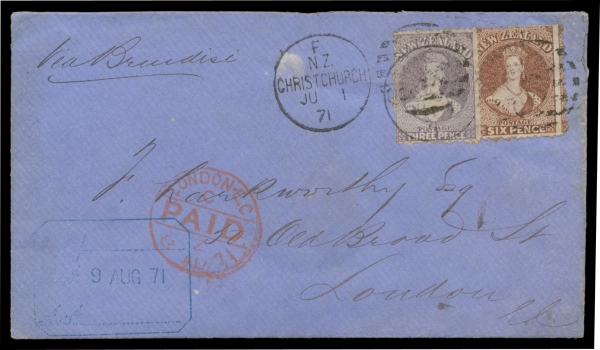 Via Brindisi
F
N.Z.
CHRISTCHURCH
JU 1
71
NEW ZEALAND
POSTAGE
THREE PENCE
NEW ZEALAND
POSTAGE
SIX PENCE
F. Larkworthy Esq
50 Old Broad St
London
LONDON-E.C
PAID
9 AUG 71